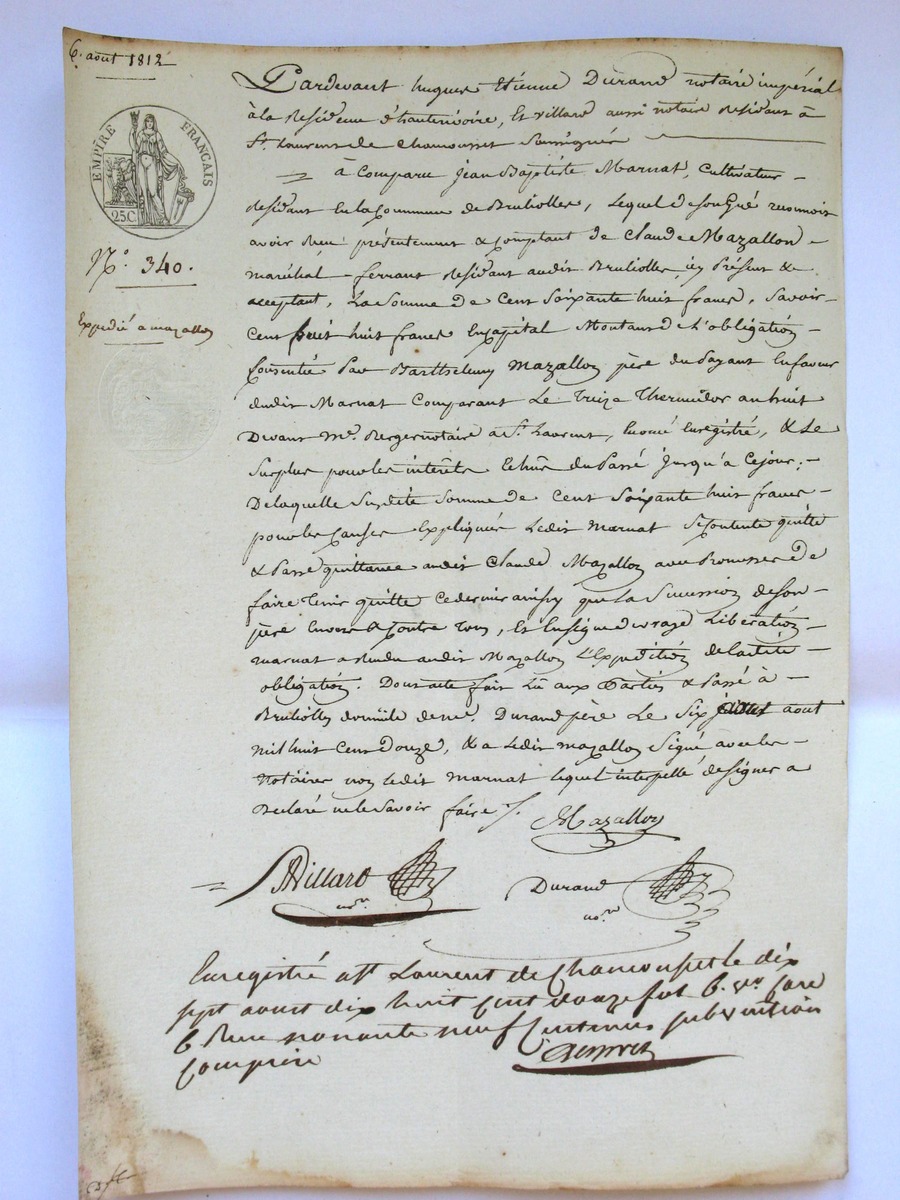 6. août 1812
EMPIRE FRANÇAIS
25C
N.° 340.
Expedié a mazallon
Pardevant hugues Etienne Durand notaire impérial
à la Residence d'hauterivoire, Et villard aussi notaire Residant à
St. Laurent de Chamousset Soussignés
à Comparu Jean Baptiste Marnat, Cultivateur
Residant En la Commune de Brulliolles, Lequel de son Gré reconnoit
avoir Reçu présentement & comptant de Claude Mazallon
maréchal ferrant Residant audit Brulliolles, icy Présent &
acceptant, La Somme de Cent Soixante huit francs, Savoir
Cent huit francs En capital Montant de L'obligation
Consentie Par Barthelemy Mazallon père du Payant En faveur
dudit Marnat Comparant Le treize Thermidor an huit
Devant Me. Berger notaire a St. Laurent, Enregistré, & Le
Surplus pour les interêts Echus du Passé Jusqu'à Ce jour;
De laquelle Susdite Somme de Cent Soixante huit francs
pour les Causes Expliquées Ledit Marnat Se Contente quitte
& Passe quittance audit Claude Mazallon avec Promesse de
faire tenir quitte Ce dernier ainsy que La Succession de son
père Envers & Contre tous, Et En signe de vraye Libération
marnat a Rendu audit Mazallon L'Expedition de La dite
obligation. Dont acte fait Lû aux Parties & Passé à
Brulliolles domicile de me. Durand père Le Six aout
mil huit Cent Douze, & a Ledit mazallon Signé avec les
Notaires non Ledit Marnat lequel interpellé de signer a
Déclaré ne le Savoir faire
Mazallon
Villard
nore
Durand
nore
Enregistré à St Laurent de Chamousset le dix
sept aout dix huit cent douze fol 6. vo. case
6 Reçu nonante neuf centimes subvention
comprise